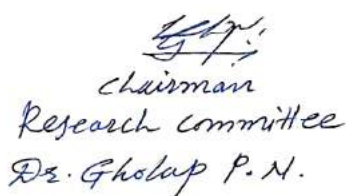 Chairman
Research Committee
Dr. Gholap P. N.